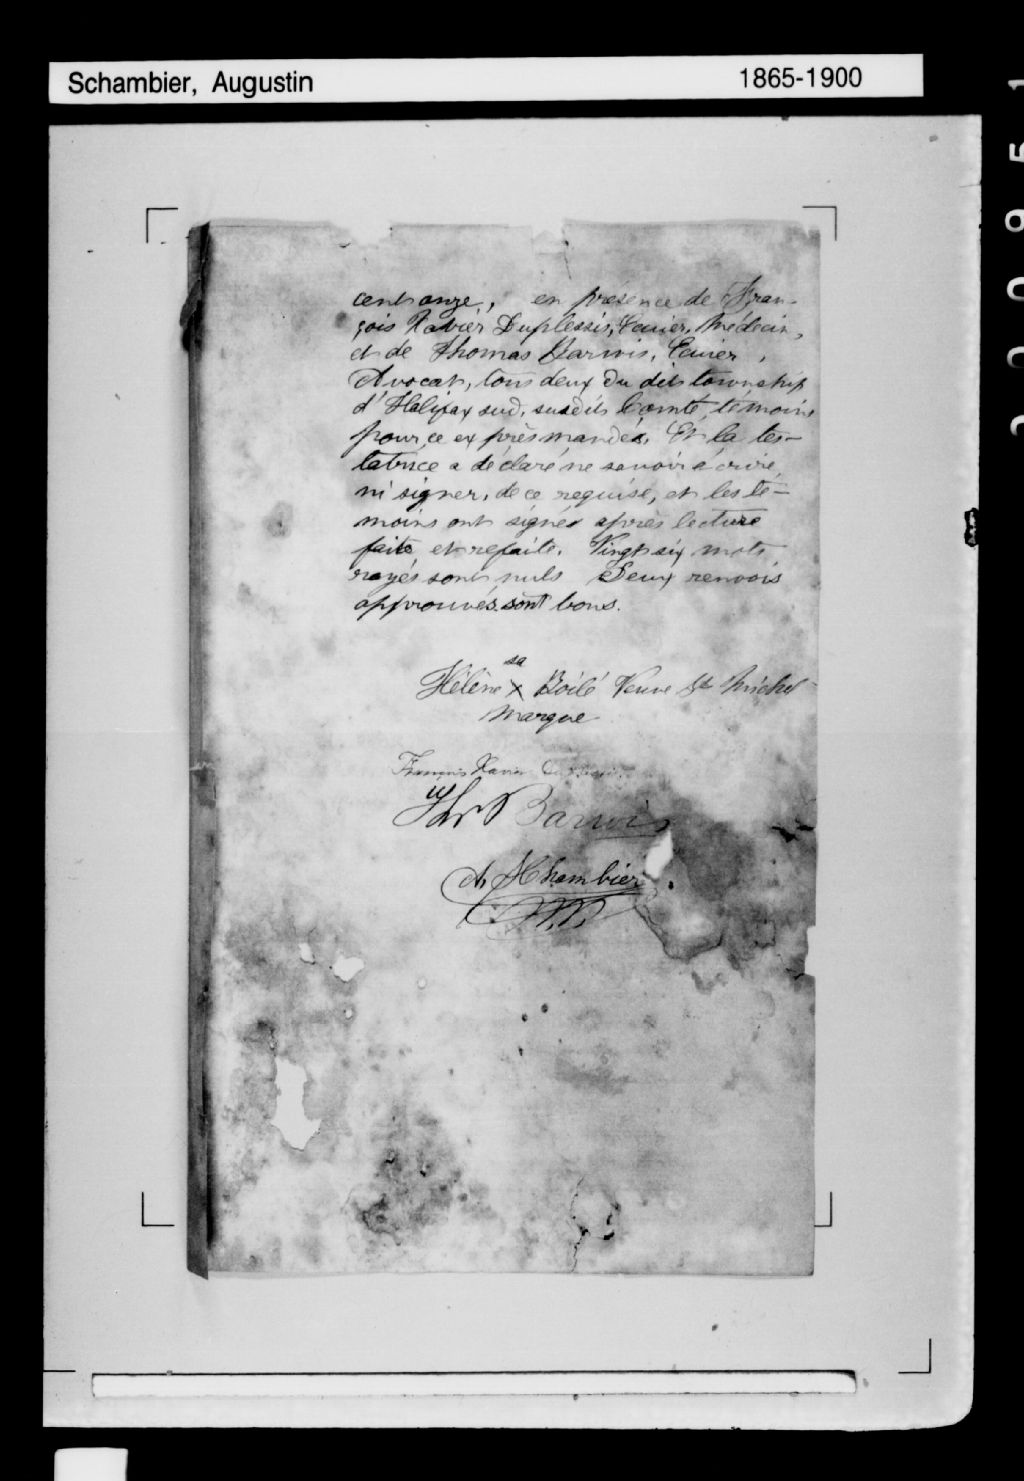 Schambier, Augustin 1865-1900
cent onze, en présence de Fran-
çois Xavier Duplessis, Ecuier, Médecin,
et de Thomas Barwis, Ecuier,
Avocat, tous deux du dit township
d'Halifax sud, susdit Comté, témoins
pour ce exprès mandés. Et la tes-
tatrice a déclaré ne savoir écrire
ni signer, de ce requise, et les té-
moins ont signés après lecture
faite, et refaite. Vingt six mots
rayés sont nuls Deux renvois
approuvés sont bons.
sa
Hélène X Boilé Veuve St Michel
marque
François Xavier Duplessis
Thos Barwis
A. Schambier
N.P.